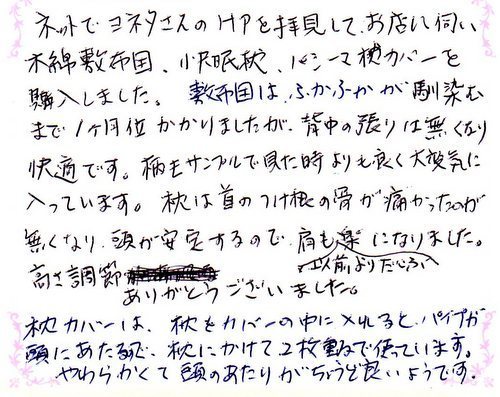 ネットでヨネタさんのHPを拝見して、お店に伺い
木綿敷布団、小沢眠枕、パシーマ枕カバーを
購入しました。敷布団は、ふかふかが馴染む
まで1ヶ月位かかりましたが、背中の張りは無くなり
快適です。柄もサンプルで見た時よりも良く大変気に
入っています。枕は首のつけ根の骨が痛かったのが
無くなり、頭が安定するので、肩も楽になりました。
以前よりだいぶ
高さ調節
ありがとうございました。
枕カバーは、枕をカバーの中に入れると、パイプが
頭にあたるので、枕にかけて2枚重ねで使っています。
やわらかくて頭のあたりがちょうど良いようです。